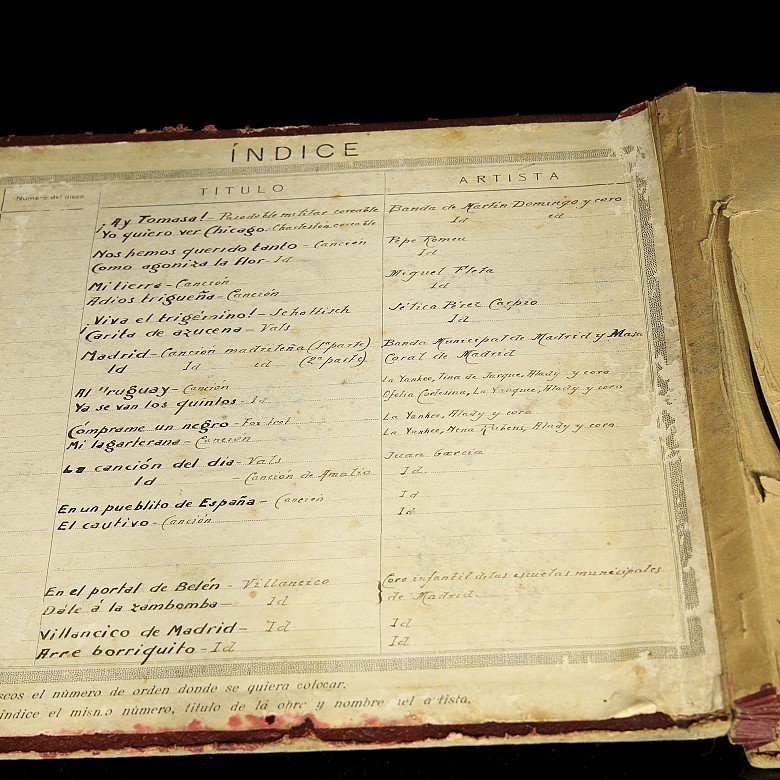 ÍNDICE
Número del disco TITULO ARTISTA
¡Ay Tomasa! - Pasodoble militar coreable Banda de Martín Domingo y coro
Yo quiero ver Chicago - Charleston coreable Id ed
Nos hemos querido tanto - Canción Pepe Romeu
Como agoniza la flor - Id Id
Mi tierra - Canción Miguel Fleta
Adios trigueña - Canción Id
¡Viva el trigémino! - Schottisch Sélica Pérez Carpio
Carita de azucena - Vals Id
Madrid - Canción madrileña (1ª parte) Banda Municipal de Madrid y Masa
Id Id ed (2ª parte) Coral de Madrid
Al Uruguay - Canción La Yankee, Tina de Jarque, Alady y coro
Ya se van los quintos - Id Ofelia Cortesina, La Yanquee, Alady y coro
Cómprame un negro - Fox trot La Yankee, Alady y coro
Mi lagarterana - Canción La Yankee, Nena Rubens, Alady y coro
La canción del dia - Vals Juan García
Id - Canción de Amalio Id.
En un pueblito de España - Canción Id
El cautivo - Canción Id
En el portal de Belén - Villancico Coro infantil de las escuelas municipales
Dále á la zambomba - Id de Madrid.
Villancico de Madrid - Id Id
Arre borriquito - Id Id
scos el número de orden donde se quiera colocar.
índice el mismo número, título de la obra y nombre del artista.